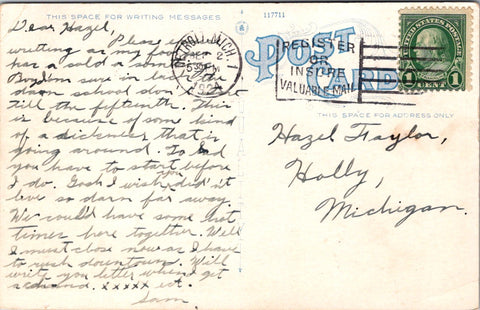 THIS SPACE FOR WRITING MESSAGES
117711
Dear Hazel,
Please
writing as my
has a sold a
sure in luck. The
darn school don't
till the fifteenth. This
is because of som kind
of a dickenes that is
going around. To bad
you have to start before
I do. Gosh I wish you did'nt
live so darn far away.
We could have some hot
times here together. Well
I must close now as I have
to rush downtown. Will
write you letter when I get
a xxxxx ect.
Sam
DETROIT, MICH.
SEP 2
POST CARD
REGISTER
OR
INSURE
VALUABLE MAIL
UNITED STATES POSTAGE
1 CENT 1
THIS SPACE FOR ADDRESS ONLY
Hazel Taylor,
Holly,
Michigan.